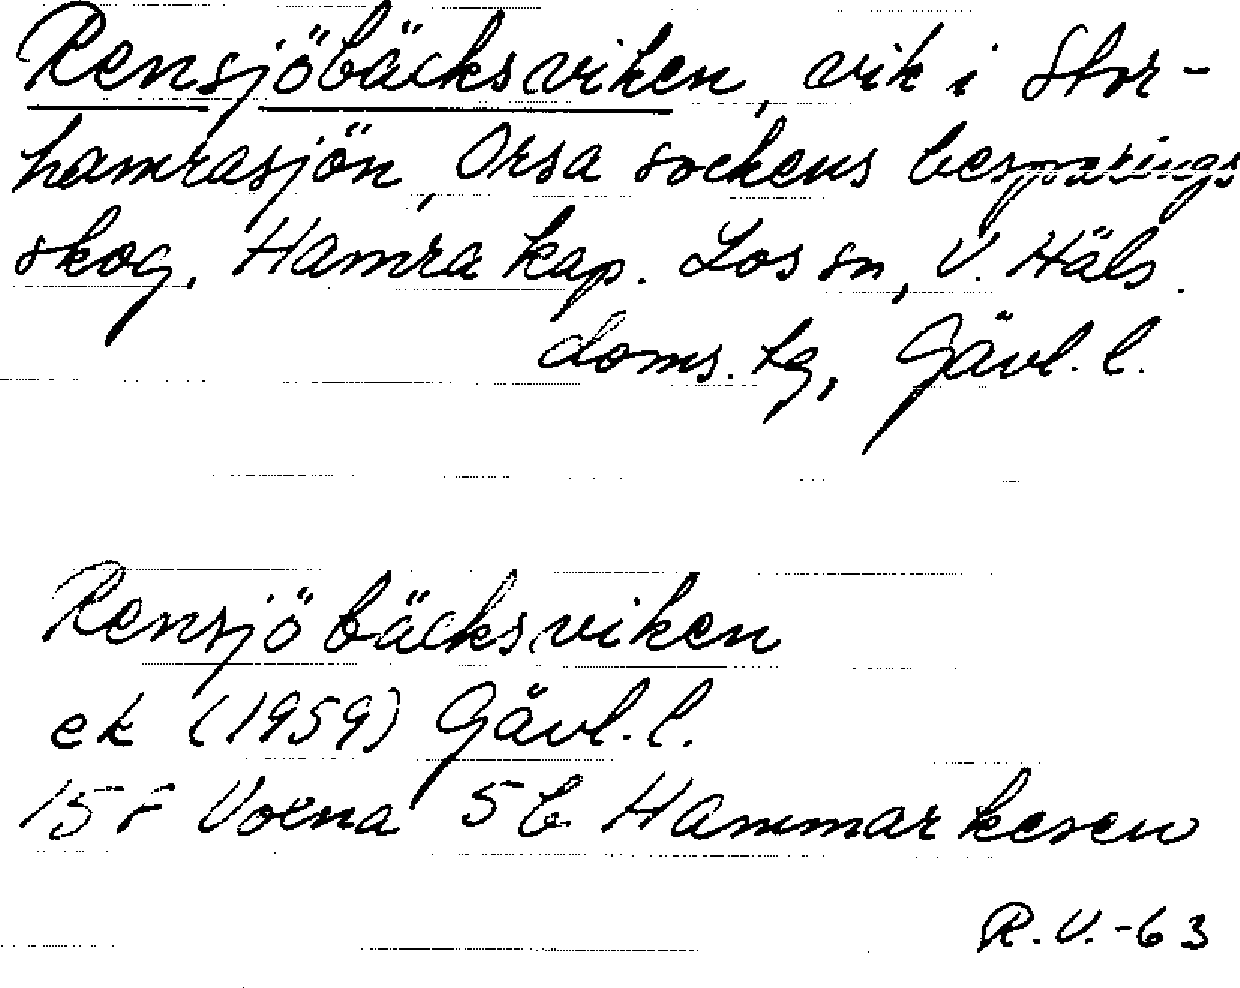 Rensjöbäcksviken, vik i Stor-
hamrasjön, Orsa sockens besparings
skog, Hamra kap. Los sn, V. Häls.
doms. tg, Gävl. l.
Rensjöbäcksviken
ek (1959) Gävl. l.
15 F Voxna 5 b Hammarkesen
R.V.-63